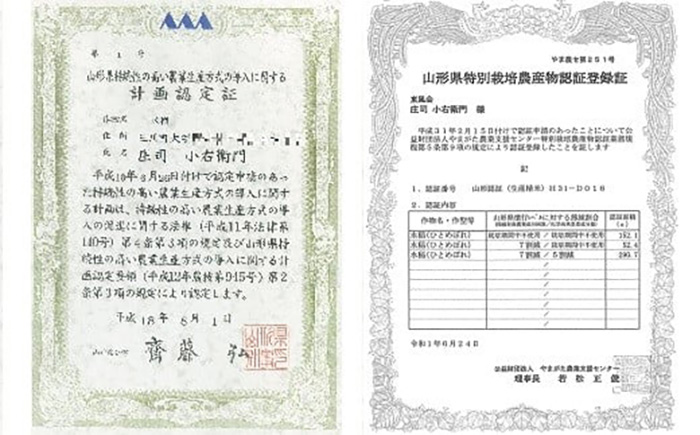 AAA
第 1 号
山形県持続性の高い農業生産方式の導入に関する
計画認定証
作物名
住所
氏名 庄司 小右衛門
平成18年 月26日付けで認定申請のあっ
た持続性の高い農業生産方式の導入に関す
る計画は、持続性の高い農業生産方式の導
入の促進に関する法律(平成11年法律第
110号)第4条第3項の規定及び山形県持
続性の高い農業生産方式の導入に関する計
画認定要領(平成12年農技第945号)第2
条第3項の規定により認定します。
平成 18年 8月 1日
齋藤 弘
やま農セ第251号
山形県特別栽培農産物認証登録証
東風会
庄司 小右衛門 様
平成31年2月15日付けで認証申請のあったことについて公
益財団法人やまがた農業支援センター特別栽培農産物認証業務規
程第5条第9項の規定により認証登録したことを証します
記
1.認証番号 山形認証(生産精米)H31-D018
2.認証内容
作物名・作型等 認証面積
(a)
水稲(ひとめぼれ) 栽培期間中不使用 / 栽培期間中不使用 152.1
水稲(ひとめぼれ) / 栽培期間中不使用 52.4
水稲(ひとめぼれ) 7割減 / 5割減
令和1年6月24日
公益財団法人 やまがた農業支援センター
理事長 若松 正俊